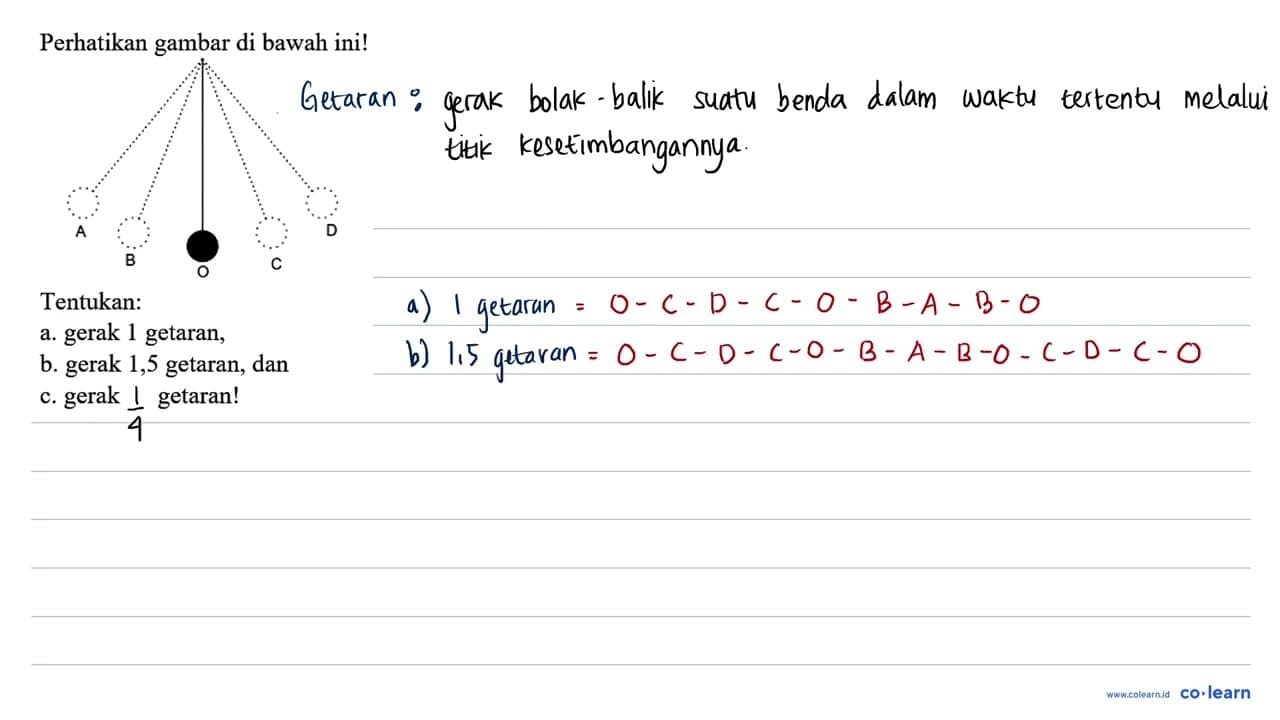 Perhatikan gambar di bawah ini!
Getaran : gerak bolak-balik suatu benda dalam waktu tertentu melalui
titik kesetimbangannya.
A
B
O
C
D
Tentukan:
a. gerak 1 getaran,
b. gerak 1,5 getaran, dan
c. gerak 1/4 getaran!
a) 1 getaran = O - C - D - C - O - B - A - B - O
b) 1,5 getaran = O - C - D - C - O - B - A - B - O - C - D - C - O
www.colearn.id co·learn